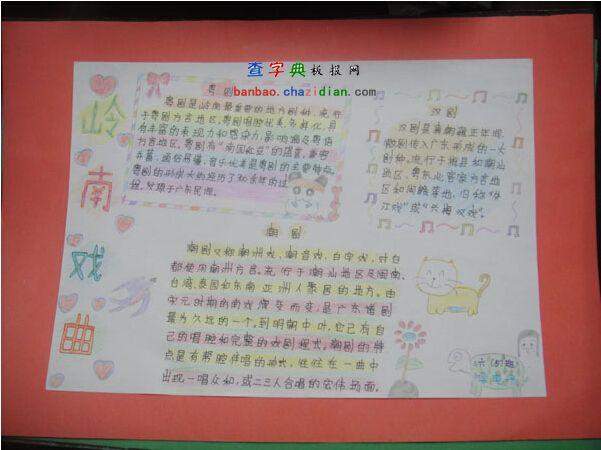 查字典板报网
banbao.chazidian.com
岭南戏曲
粤剧
粤剧是岭南最重要的地方剧种,流行
于粤剧方言地区,粤剧唱腔优美多样化,具
有丰富的表现力和感染力,影响遍及粤语
方言地区,粤剧有“南国红豆”的盛誉,兼容
并蓄,通俗易懂,音乐优美是粤剧的主要特点,
粤剧的形成大约经历了300余年的过
程,发源于广东民间。
汉剧
汉剧是 正年间,
徽剧传入广东形成的一大
剧种,流行于梅县和潮汕
地区,粤东北客家方言地
区和闽赣等地,旧称“外
江戏”或“大梅汉戏”。
潮剧
潮剧又称潮洲戏、潮音戏、白字戏,对白
都使用潮洲方言。流行于潮汕地区及闽南、
台湾,泰国和东南亚洲人聚居的地方。由
宋元时期的南戏演变而变,是广东诸剧
最为久远的一个,到明朝中叶,它已有自
己的唱腔和完整的戏剧程式。潮剧的特
点是有帮腔伴唱的形式,往往在一曲中
出现一唱众和,或二三人合唱的宏伟场面。
六(5)班